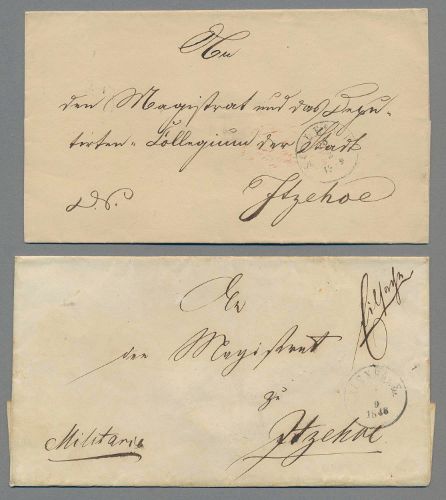 An
den Magistrat und das Depu-
tirten-Collegium der Stadt
Itzehoe
d. S.
An
den Magistrat
zu
Itzehoe
Eilsache
Militaria
9
1848